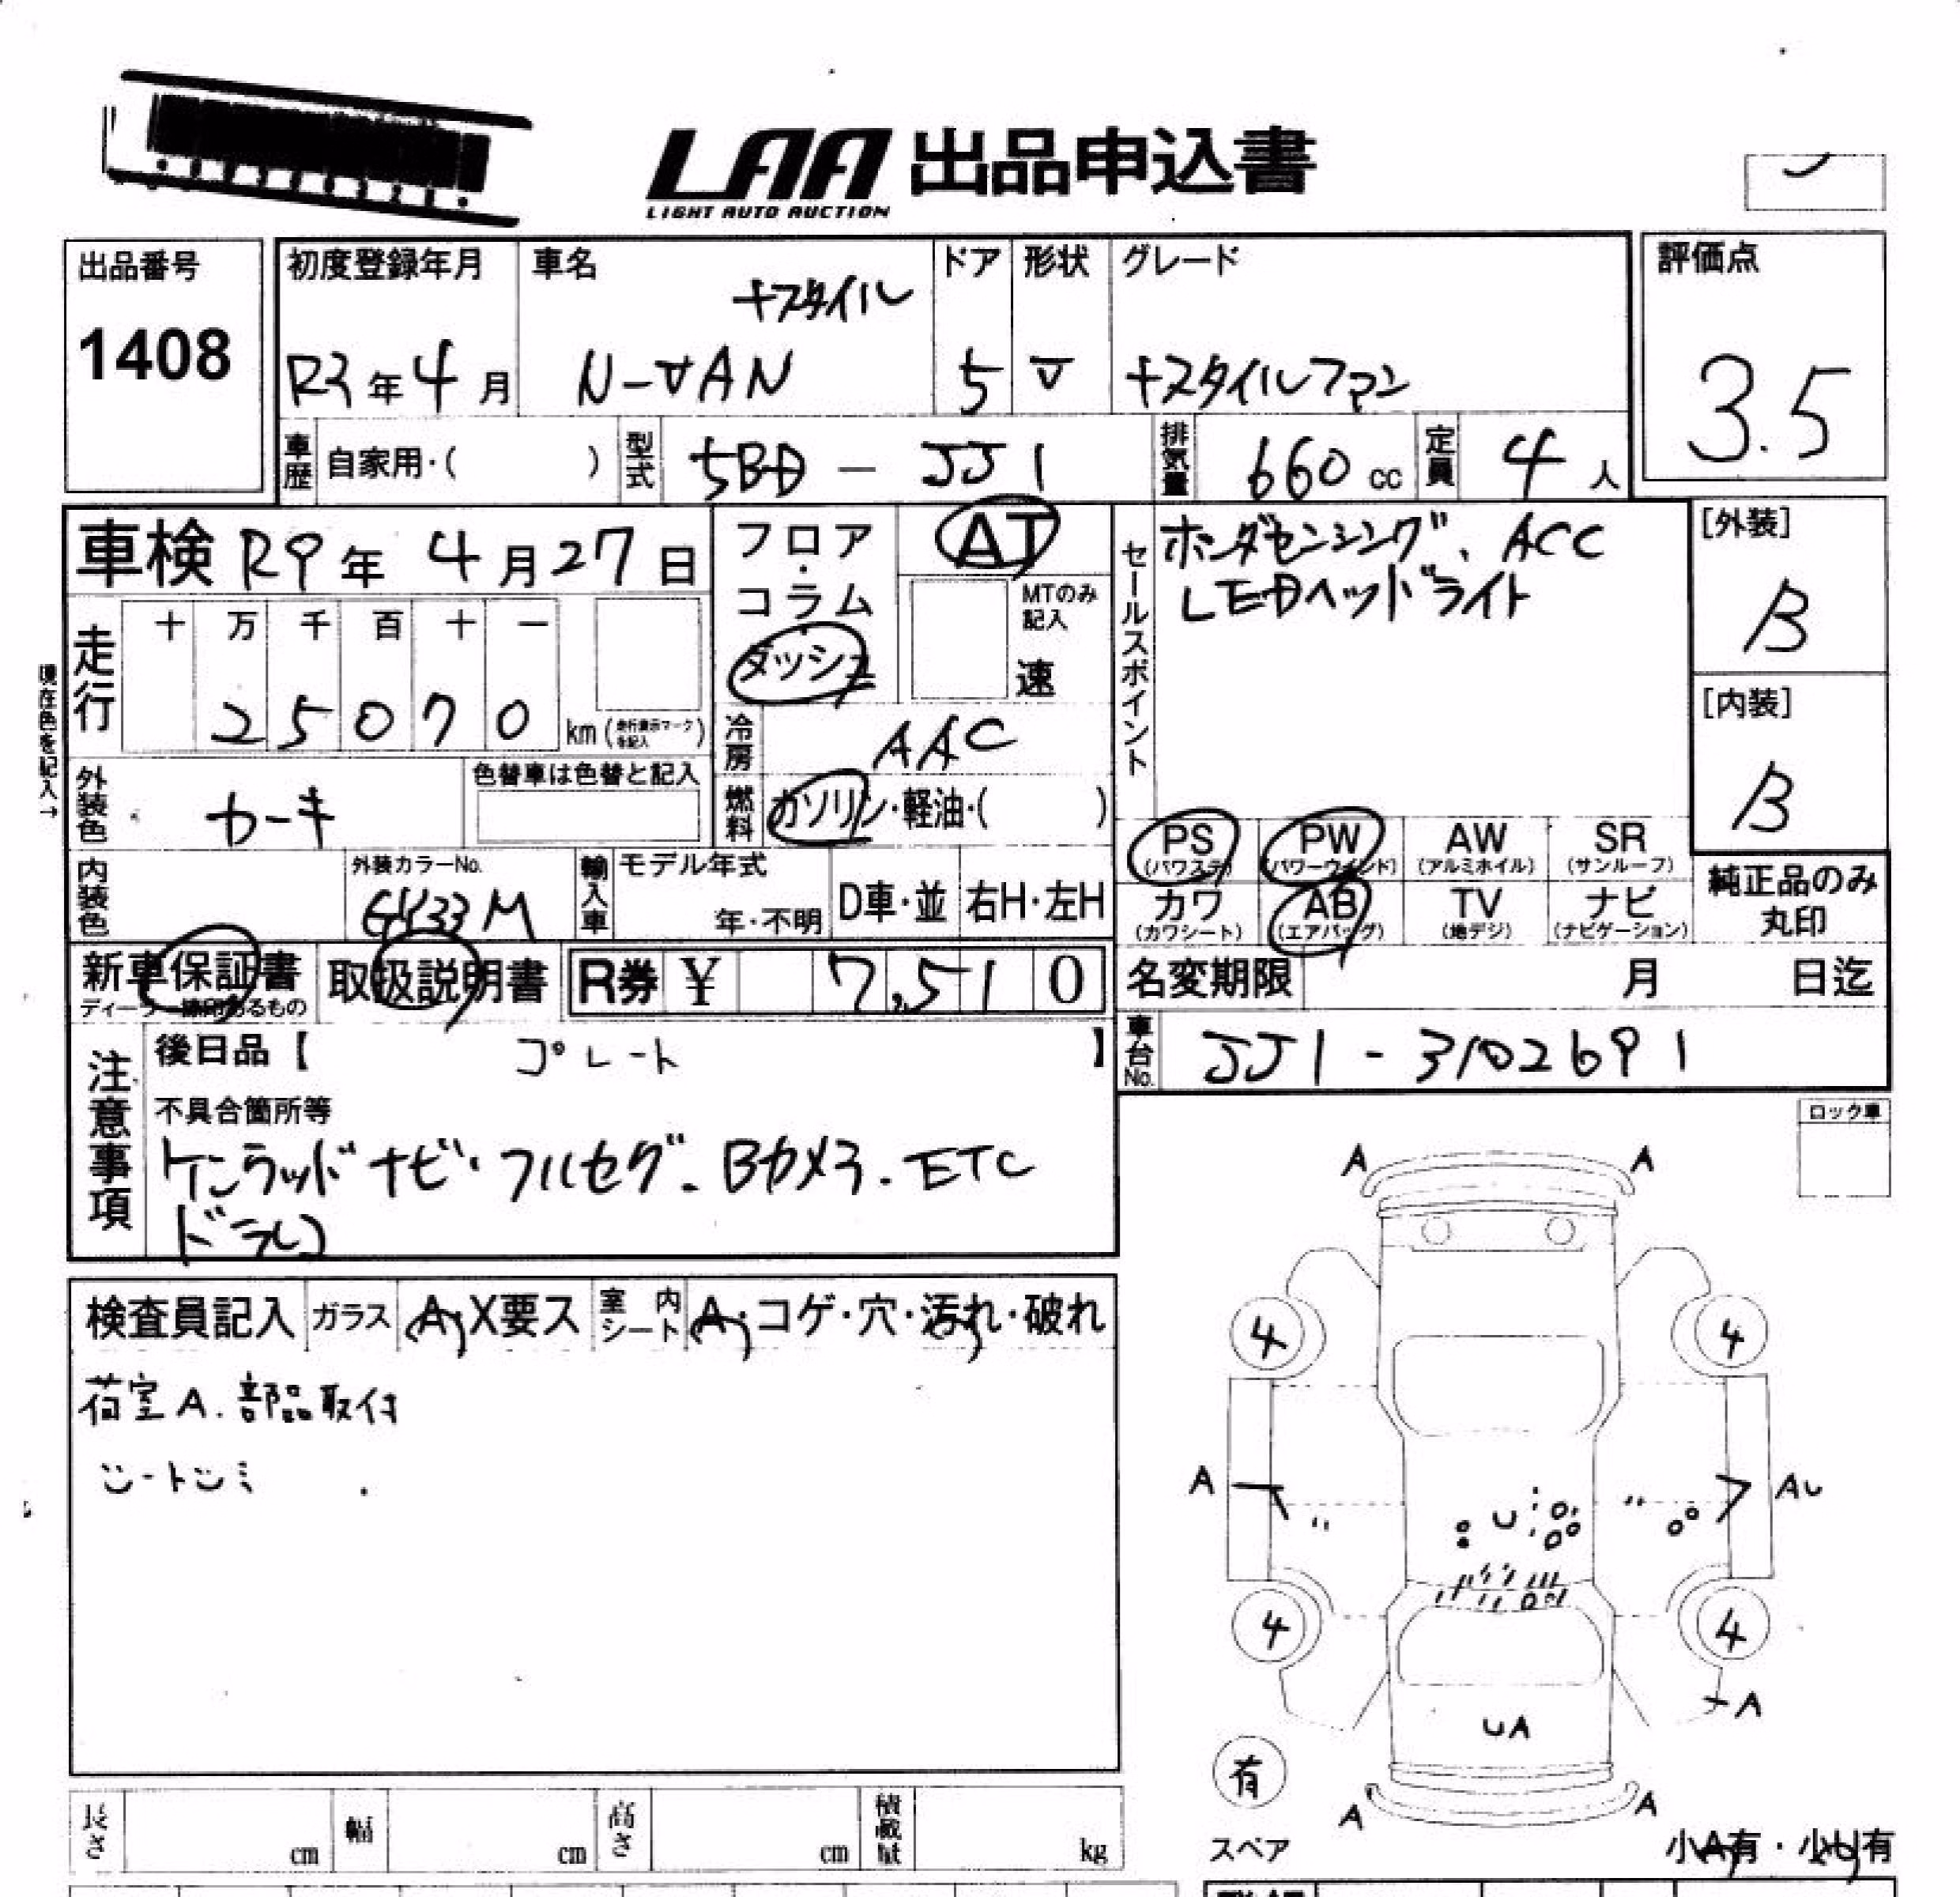 LAA 出品申込書
LIGHT AUTO AUCTION
出品番号
1408
初度登録年月
R3年4月
車名
+スタイル
N-VAN
ドア
5
形状
V
グレード
+スタイルファン
評価点
3.5
車歴 自家用・( )
型式 5BD - JJ1
排気量 660 cc
定員 4 人
車検 R9年 4月27日
走行 十 万 千 百 十 一
25070 km (走行表示マークを記入)
現在色を記入→
外装色 カーキ
色替車は色替と記入
内装色
外装カラーNo.
GY33M
輸入車 モデル年式
年・不明 D車・並 右H・左H
フロア・コラム・ダッシュ
AT
MTのみ記入
速
冷房 AAC
燃料 ガソリン・軽油・( )
セールスポイント
ホンダセンシング、ACC
LEDヘッドライト
[外装]
B
[内装]
B
PS (パワステ) PW (パワーウインド) AW (アルミホイル) SR (サンルーフ)
カワ (カワシート) AB (エアバッグ) TV (地デジ) ナビ (ナビゲーション)
純正品のみ
丸印
新車保証書
取扱説明書
R券 ¥ 7,510
名変期限 月 日迄
車台No. JJ1-3102691
注意事項
後日品【 プレート 】
不具合箇所等
ケンウッドナビ・フルセグ・Bカメラ・ETC
ドラレコ
検査員記入 ガラス A・X要ス 室内シート A・コゲ・穴・汚れ・破れ
荷室A.部品取付
シートシミ
ロック車
A A
4 4
A U AU
4 4
A
UA
有
A A
スペア
小A有・小U有
長さ cm 幅 cm 高さ cm 積載量 kg